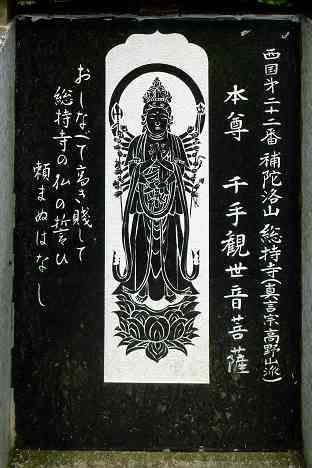 西国第二十二番 補陀洛山 総持寺(真言宗高野山派)
本尊 千手観世音菩薩
おしなべて高き賤しき
総持寺の仏の誓ひ
頼まぬはなし